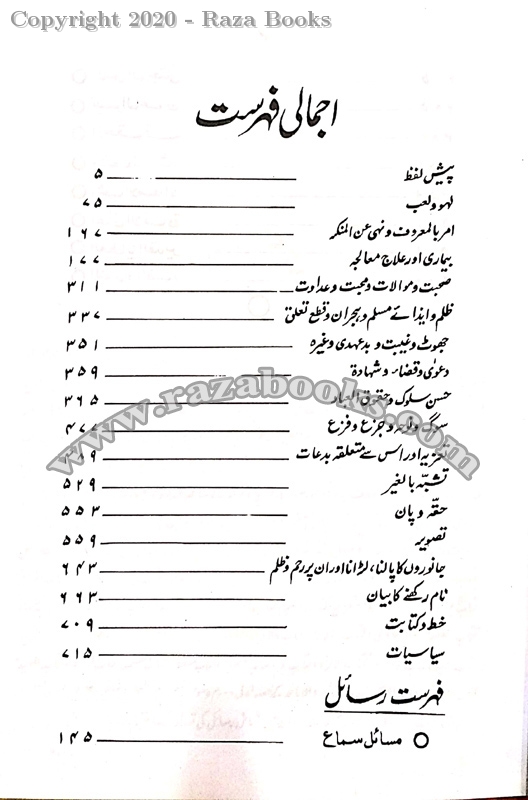 Copyright 2020 - Raza Books
اجمالی فہرست
پیش لفظ ۵
لہو ولعب ۷۵
امر بالمعروف و نہی عن المنکر ۱۶۷
بیماری اور علاج معالجہ ۱۷۷
صحبت و موالات و محبت و عداوت ۳۱۱
ظلم و ایذائے مسلم و ہجران و قطع تعلق ۳۳۷
جھوٹ و غیبت و بدعہدی وغیرہ ۳۵۱
دعوٰی و قضاء و شہادۃ ۳۵۹
حسن سلوک و حقوق العباد ۳۶۵
سوگ و نوحہ و جزع و فزع ۴۷۷
تعزیہ اور اس سے متعلقہ بدعات
تشبّہ بالغیر ۵۲۹
حقّہ و پان ۵۵۳
تصویر ۵۵۹
جانوروں کا پالنا، لڑانا اور ان پر رحم و ظلم ۶۴۳
نام رکھنے کا بیان ۶۶۳
خط و کتابت ۷۰۹
سیاسیات ۷۱۵
فہرست رسائل
مسائل سماع ۱۴۵
www.razabooks.com